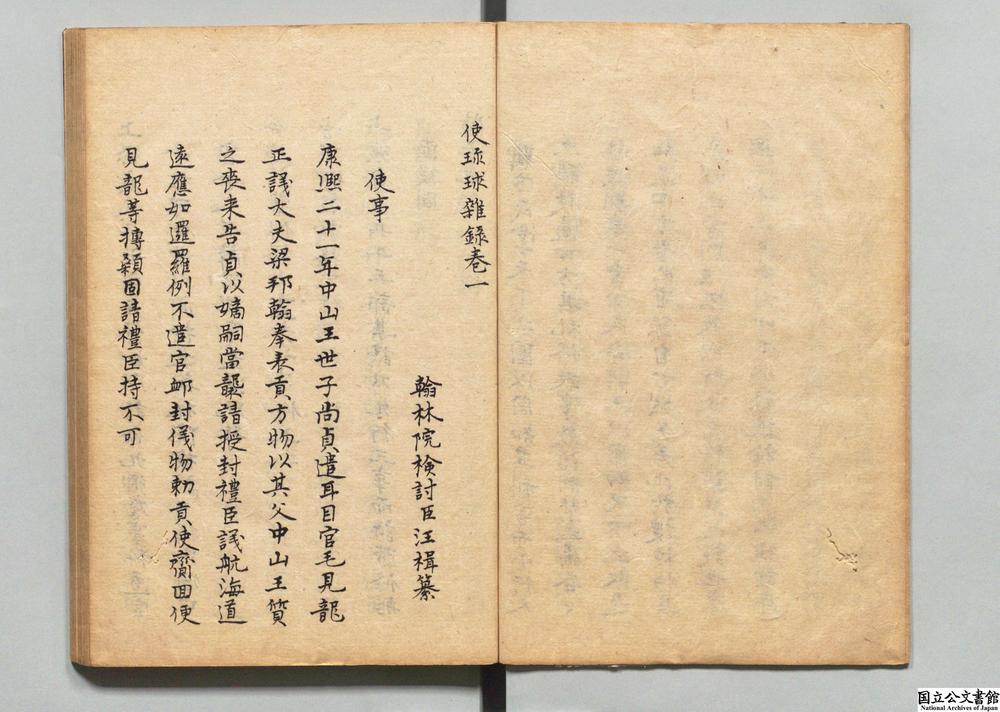 使琉球雜録卷一
翰林院檢討臣汪楫纂
使事
康熙二十一年中山王世子尚貞遣耳目官毛見龍
正議大夫梁邦翰奉表貢方物以其父中山王質
之喪来告貞以嫡嗣當襲請授封禮臣議航海道
遠應如暹羅例不遣官䘏封儀物勅貢使齎回便
見龍等摶顙固請禮臣持不可
国立公文書館
National Archives of Japan